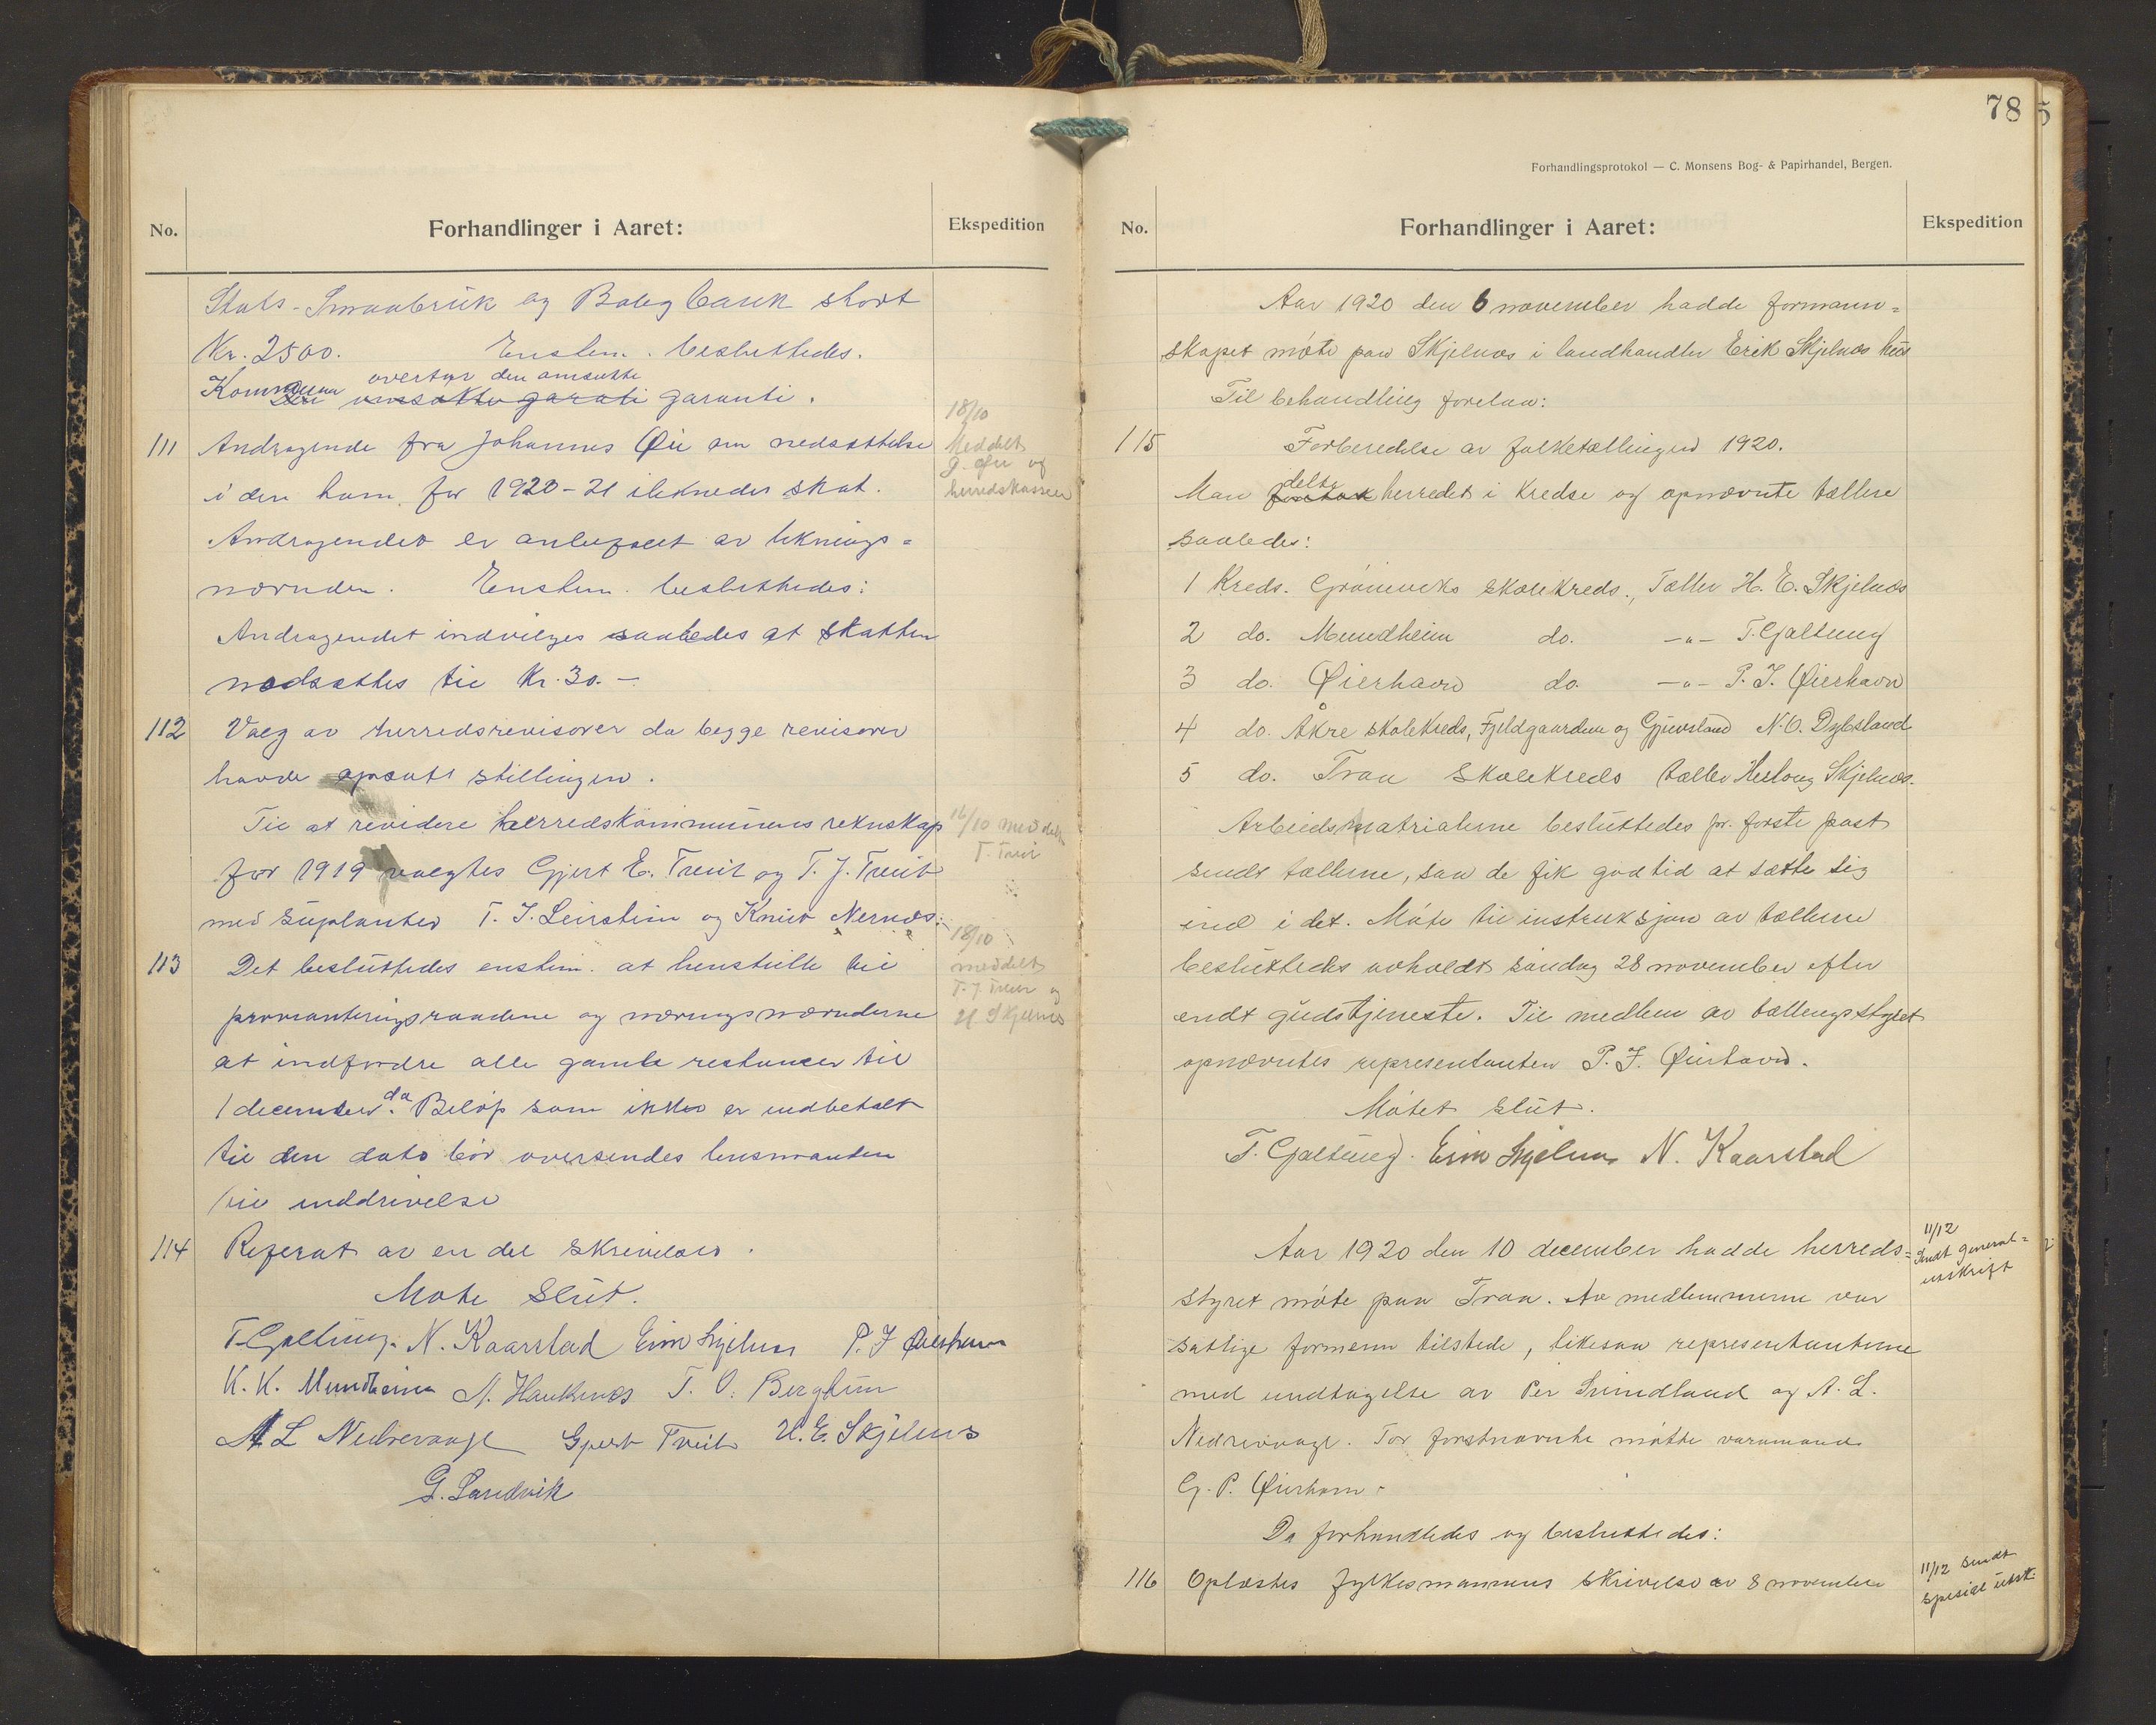 No.
Forhandlinger i Aaret:
Ekspedition
Stats-Smaabruk og Boligbank stort
Kr. 2500. Enstem. besluttedes.
Kommunen overtar den ansøkte
Den ansøkte garati garanti.
111 Andragende fra Johannes Øie om nedsættelse
i den ham for 1920-21 iliknede skat.
Andragendet er anbefalet av liknings=
nævnden. Enstem. besluttedes:
Andragendet indvilges saaledes at skatten
nedsættes til Kr. 30.-
18/10
Meddelt
J. Øie og
herredskasserer
112 Valg av herredsrevisorer da begge revisorer
havde opsagt stillingen.
Til at revidere herredskommunens reknskap
for 1919 valgtes Gjert E. Tveit og T. J. Tveit
med suplanter T. J. Leirstein og Knut Nernæs.
16/10 meddelt
T. Tveit
113 Det besluttedes enstem. at henstille til
provianteringsraadene og nævingsnævnderne
at indfordre alle gamle restancer til
1 december d.a. Beløp som ikke er indbetalt
til den dato bør oversendes lensmanden
til inddrivelse
18/10
meddelt
T. J. Tveit og
H Skjelnes
114 Referat av en del skrivelser.
Møte slut.
T. Galtung. N. Kaarstad Eirik Skjelnæs P. J Øierhavn
K. K. Mundheim N. Haukenæs T. O. Berghim
A L Nedrevaage Gjert Tveit H. E. Skjelnes
G. Sandvik
78
5
Forhandlingsprotokol — C. Monsens Bog- & Papirhandel, Bergen.
No.
Forhandlinger i Aaret:
Ekspedition
Aar 1920 den 6 november hadde formann=
skapet møte paa Skjelnæs i landhandler Erik Skjelnæs hus
Til behandling forelaa:
115 Forberedelse av folketællingen 1920.
Man delte herredet i kredse og opnævnte tællere
saaledes:
1 Kreds. Grønviks skolekreds., Tæller H. E. Skjelnæs
2 do. Mundheim do. -"- T. Galtung
3 do. Øierhavn do. -"- P. J. Øierhavn
4 do. Åkre skolekreds, Fjeldgaardene og Gjuvsland N. O. Dybsland
5 do. Traa skolekreds tæller Herlaug Skjelnæs.
Arbeidsmatrialerne besluttedes pr. første post
sendt tællerne, saa de fik god tid at sætte sig
ind i det. Møte til instruksjon av tællerne
besluttedes avholdt søndag 28 november efter
endt gudstjeneste. Til medlem av tællingsstyret
opnævntes representanten P. J. Øierhavn.
Møtet slut.
T. Galtung. Eirik Skjelnæs N. Kaarstad
Aar 1920 den 10 december hadde herreds=
styret møte paa Traa. Av medlemmerne var
samtlige formenn tilstede, likesaa representanterne
med undtagelse av Per Svindland og A. L.
Nedrevaage. For førstnævnte møtte varamand
G. P. Øierhavn.
11/12
Sendt general=
utskrift
Da forhandledes og besluttedes:
116 Oplæstes fylkesmannens skrivelse av 8 november
11/12 sendt
spesial utskr.